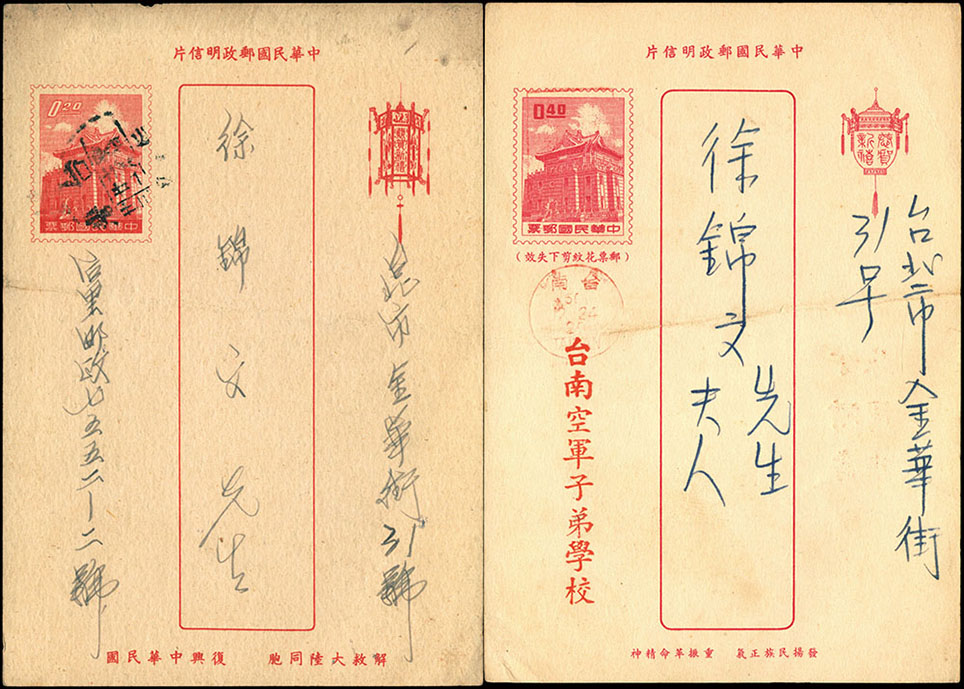 中華民國郵政明信片
0.20
中華民國郵票
市金華街31號
徐錦文先生
郵政七五五二—二號
解救大陸同胞 復興中華民國
中華民國郵政明信片
0.40
中華民國郵票
(郵票花紋剪下失效)
恭賀新禧
台北市金華街
31号
徐錦文先生
夫人
台南
51
24
台南空軍子弟學校
發揚民族正氣 重振革命精神